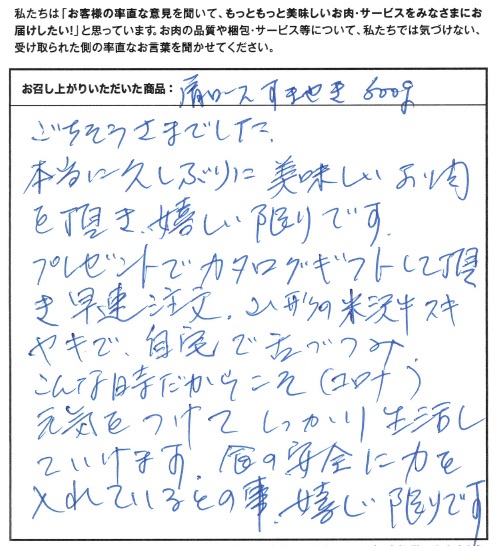 私たちは「お客様の率直な意見を聞いて、もっともっと美味しいお肉・サービスをみなさまにお
届けしたい!」と思っています。お肉の品質や梱包・サービス等について、私たちでは気づけない、
受け取られた側の率直なお言葉を聞かせてください。
お召し上がりいただいた商品: 肩ロースすきやき 600g
ごちそうさまでした。
本当に久しぶりに美味しいお肉
を頂き、嬉しい限りです。
プレゼントでカタログギフトして頂
き早速注文。山形の米沢牛スキ
ヤキで、自宅で舌づつみ。
こんな時だからこそ(コロナ)
元気をつけてしっかり生活し
ていけます。食の安全に力を
入れているとの事、嬉しい限りです